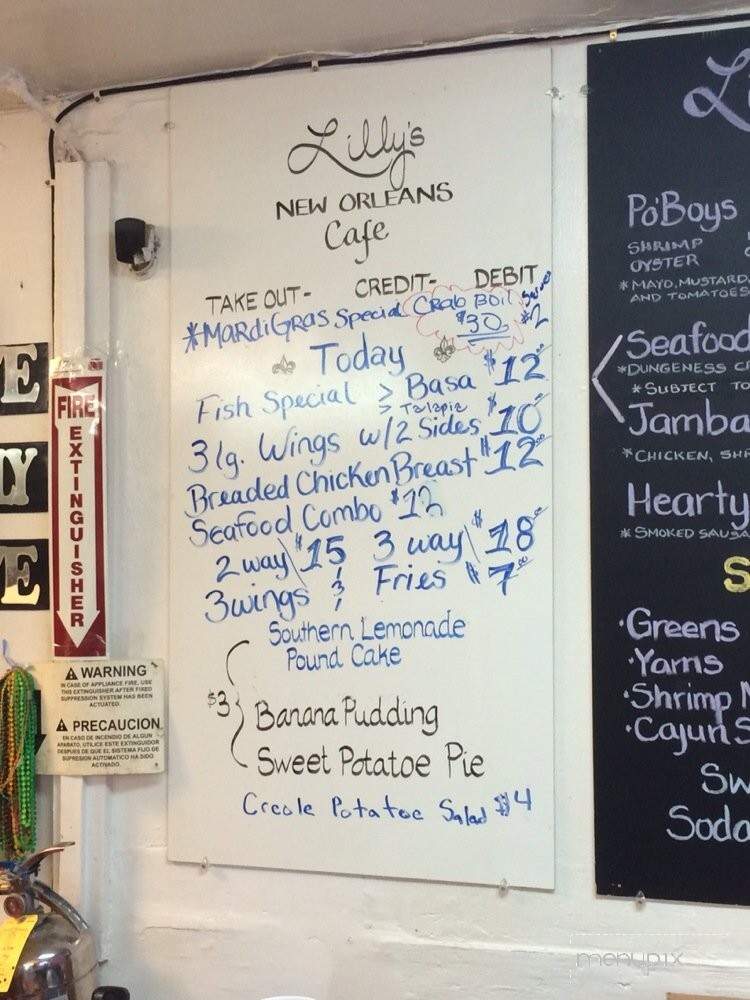 Lilly's
NEW ORLEANS
Cafe
TAKE OUT- CREDIT- DEBIT
*MardiGras Special Crab Boil
$30 $2
Today
Fish Special > Basa $12
> Talapia
3 lg. Wings w/2 Sides $10
Breaded Chicken Breast $12
Seafood Combo $12
2 way\ $15 3 way\ $18
3 wings & Fries $7
Southern Lemonade
Pound Cake
$3
Banana Pudding
Sweet Potatoe Pie
Creole Potatoe Salad $4
E
LY
E
FIRE
EXTINGUISHER
WARNING
IN CASE OF APPLIANCE FIRE, USE
THIS EXTINGUISHER AFTER FIXED
SUPPRESSION SYSTEM HAS BEEN
ACTUATED.
PRECAUCION
EN CASO DE INCENDIO DE ALGUN
APARATO, UTILICE ESTE EXTINGUIDOR
DESPUES DE QUE EL SISTEMA FIJO DE
SUPRESION AUTOMATICO HA SIDO
ACTIVADO.
L
Po'Boys
SHRIMP
OYSTER
*MAYO, MUSTARD,
AND TOMATOES
Seafood
*DUNGENESS C
*SUBJECT TO
Jamba
*CHICKEN, SHR
Hearty
*SMOKED SAUSA
S
·Greens
·Yams
·Shrimp
·Cajun S
Sw
Soda
menupix